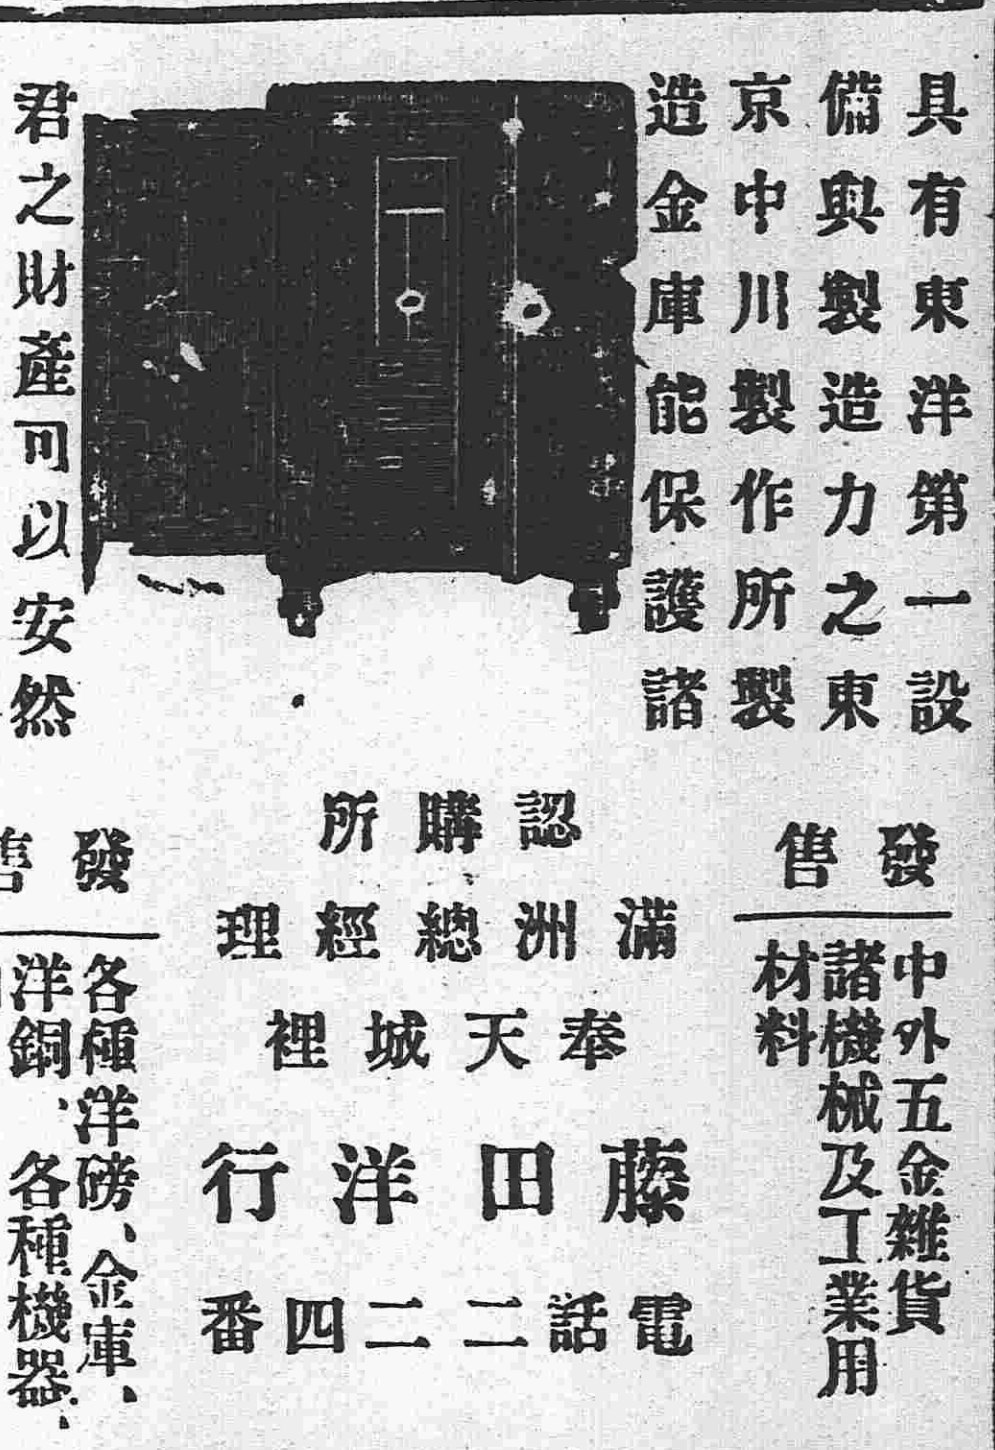 具有東洋第一設
備與製造力之東
京中川製作所製
造金庫能保護諸
君之財產可以安然
發售
中外五金雜貨
諸機械及工業用
材料
認購所
滿洲總經理
奉天城裡
藤田洋行
電話二二四番
發售
各種洋磅、金庫、
洋鋼、各種機器、